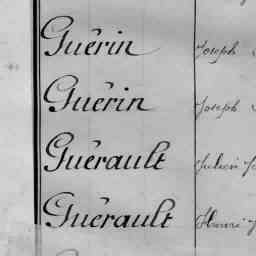 Guérin Joseph
Guérin Joseph
Guérault Julien
Guérault Henri